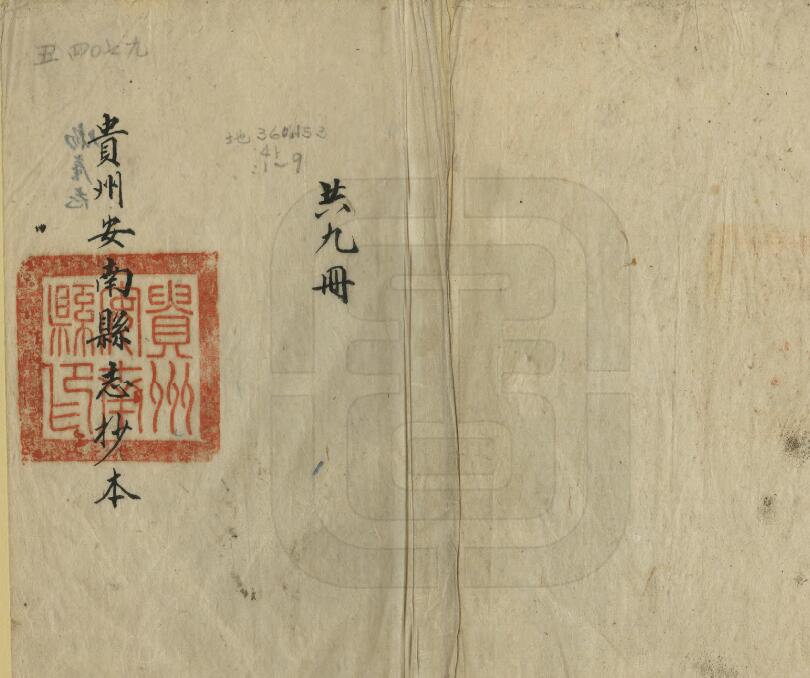 共九冊
地 360.153
41
1~9
貴州安南縣志抄本
貴州
安南
縣印
丑四〇七九